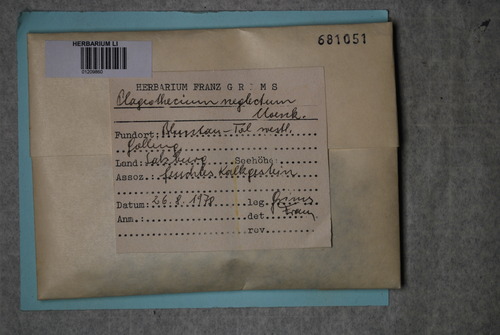 HERBARIUM LI
681051
HERBARIUM FRANZ GRIMS
Plagiothecium neglectum
Moenk.
Fundort: Tal westl.
Golling
Land: Salzburg Seehöhe:
Assoz.: feuchtes Kalkgestein
Datum: 26.8.1978 leg. Grims
Anm.: det. Franz
rev.